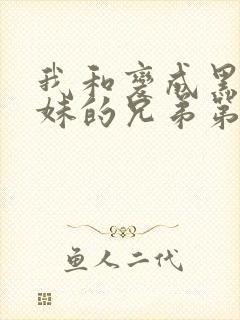 我和变成黑
妹的兄弟第
鱼人二代